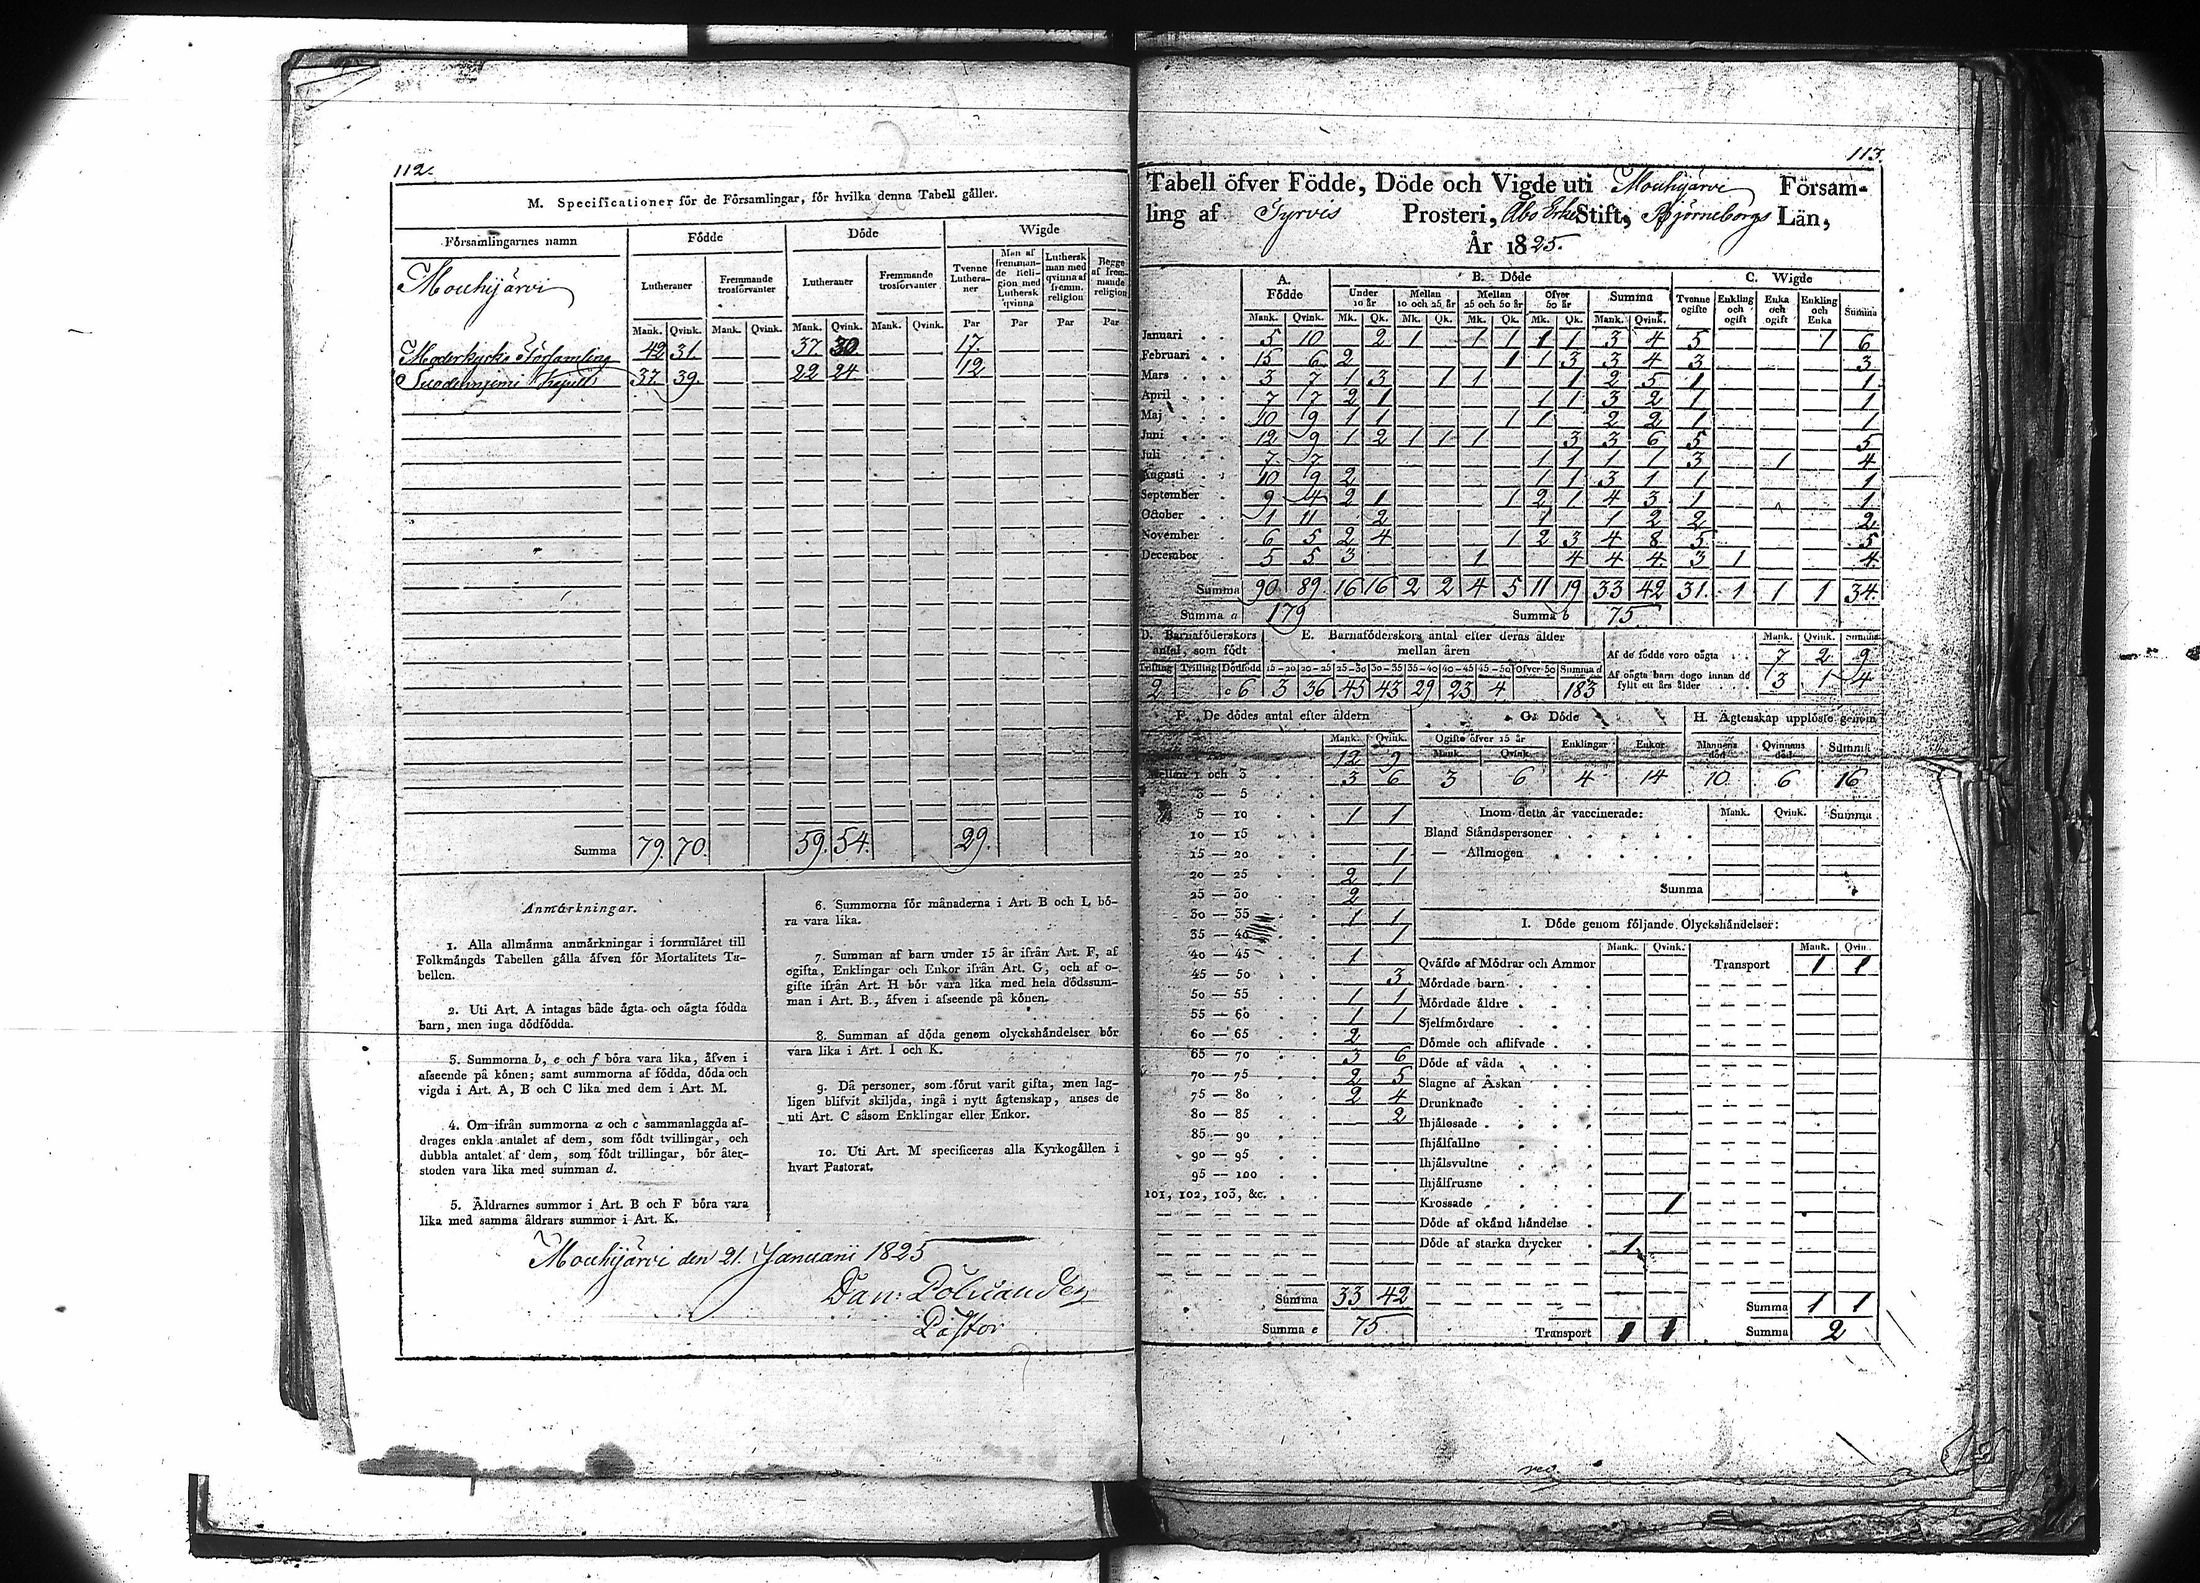 112.
M. Specificationer för de Församlingar, för hvilka denna Tabell gäller.
Församlingarnes namn Födde Döde Wigde
Lutheraner Fremmande trosförvanter Lutheraner Fremmande trosförvanter Tvenne Lutheraner Man af fremmande Religion med Luthersk qvinna Luthersk man med qvinna af fremm. religion Begge af fremmande religion
Mouhijärvi
Mank. Qvink. Mank. Qvink. Mank. Qvink. Mank. Qvink. Par Par Par Par
Moderkyrko Församling 42 31. 37 30 17.
Suodenniemi Kapell 37. 39. 22 24 12
Summa 79. 70. 59. 54. 29.
Anmärkningar.
1. Alla allmänna anmärkningar i formuläret till
Folkmängds Tabellen gälla äfven för Mortalitets Ta-
bellen.
2. Uti Art. A intagas både ägta och oägta födda
barn, men inga dödfödda.
3. Summorna b, e och f böra vara lika, äfven i
afseende på könen; samt summorna af födda, döda och
vigda i Art. A, B och C lika med dem i Art. M.
4. Om ifrån summorna a och c sammanlaggda af-
drages enkla antalet af dem, som födt tvillingar, och
dubbla antalet af dem, som födt trillingar, bör åter-
stoden vara lika med summan d.
5. Åldrarnes summor i Art. B och F böra vara
lika med samma åldrars summor i Art. K.
6. Summorna för månaderna i Art. B och L bö-
ra vara lika.
7. Summan af barn under 15 år ifrån Art. F, af
ogifta, Enklingar och Enkor ifrån Art. G, och af o-
gifte ifrån Art. H bör vara lika med hela dödssum-
man i Art. B., äfven i afseende på könen.
8. Summan af döda genom olyckshändelser bör
vara lika i Art. I och K.
9. Då personer, som förut varit gifta, men lag-
ligen blifvit skiljda, ingå i nytt ägtenskap, anses de
uti Art. C såsom Enklingar eller Enkor.
10. Uti Art. M specificeras alla Kyrkogällen i
hvart Pastorat.
Mouhijärvi den 21. Januarii 1825
Dan:
Pastor
113.
Tabell öfver Födde, Döde och Vigde uti Mouhijärvi Försam-
ling af Tyrvis Prosteri, Åbo Erke Stift, Björneborgs Län,
År 1825.
A. Födde B. Döde C. Wigde
Under 10 år Mellan 10 och 25 år Mellan 25 och 50 år Öfver 50 år Summa Tvenne ogifte Enkling och ogift Enka och ogift Enkling och Enka Summa
Mank. Qvink. Mk. Qk. Mk. Qk. Mk. Qk. Mk. Qk. Mank. Qvink.
Januari 5 10 2 1 1 1 1 1 3 4 5 1 6
Februari 15 6 2 1 1 3 3 4 3 3
Mars 3 7 1 3 1 1 1 2 5 1 1
April 7 7 2 1 1 1 3 2 1 1
Maj 10 9 1 1 1 1 2 2 1 1
Juni 12 9 1 2 1 1 1 3 3 6 5 5
Juli 7 7 1 1 1 1 3 1 4
Augusti 10 9 2 1 1 3 1 1 1
September 9 4 2 1 1 2 1 4 3 1 1
October 1 11 2 1 1 2 2 2
November 6 5 2 4 1 2 3 4 8 5 5
December 5 5 3 1 4 4 4 3 1 4
Summa 90 89. 16 16 2 2 4 5 11 19 33 42 31. 1 1 1 34.
Summa a 179 Summa b 75
D. Barnaföderskors antal, som födt E. Barnaföderskors antal efter deras ålder mellan åren
Mank. Qvink. Summa
Tvilling Trilling Dödfödd 15-20 20-25 25-30 30-35 35-40 40-45 45-50 Öfver 50 Summa d
2 c 6 3 36 45 43 29 23 4 183
Af de födde voro oägta 7 2 9
Af oägta barn dogo innan de fyllt ett års ålder 3 1 4
F. De dödes antal efter åldern
Mank. Qvink.
12 9
Mellan 1 och 3 3 6
3 — 5
5 — 10 1 1
10 — 15
15 — 20 1
20 — 25 2 1
25 — 30 2
30 — 35 1 1
35 — 40 1
40 — 45 1
45 — 50 3
50 — 55 1 1
55 — 60 1 1
60 — 65 2
65 — 70 3 6
70 — 75 2 5
75 — 80 2 4
80 — 85 2
85 — 90
90 — 95
95 — 100
101, 102, 103, &c.
Summa 33 42
Summa e 75
G. Döde
Ogifte öfver 15 år Enklingar Enkor
Mank. Qvink.
3 6 4 14
H. Ägtenskap upplöste genom
Mannens död Qvinnans död Summa
10 6 16
Inom detta år vaccinerade: Mank. Qvink. Summa
Bland Ståndspersoner
— Allmogen
Summa
I. Döde genom följande Olyckshändelser:
Mank. Qvink. Mank. Qvin.
Qväfde af Mödrar och Ammor Transport 1 1
Mördade barn
Mördade äldre
Sjelfmördare
Dömde och aflifvade
Döde af våda
Slagne af Åskan
Drunknade
Ihjälosade
Ihjälfallne
Ihjälsvultne
Ihjälfrusne
Krossade 1
Döde af okänd händelse
Döde af starka drycker 1
Summa 1 1
Transport 1 1 Summa 2